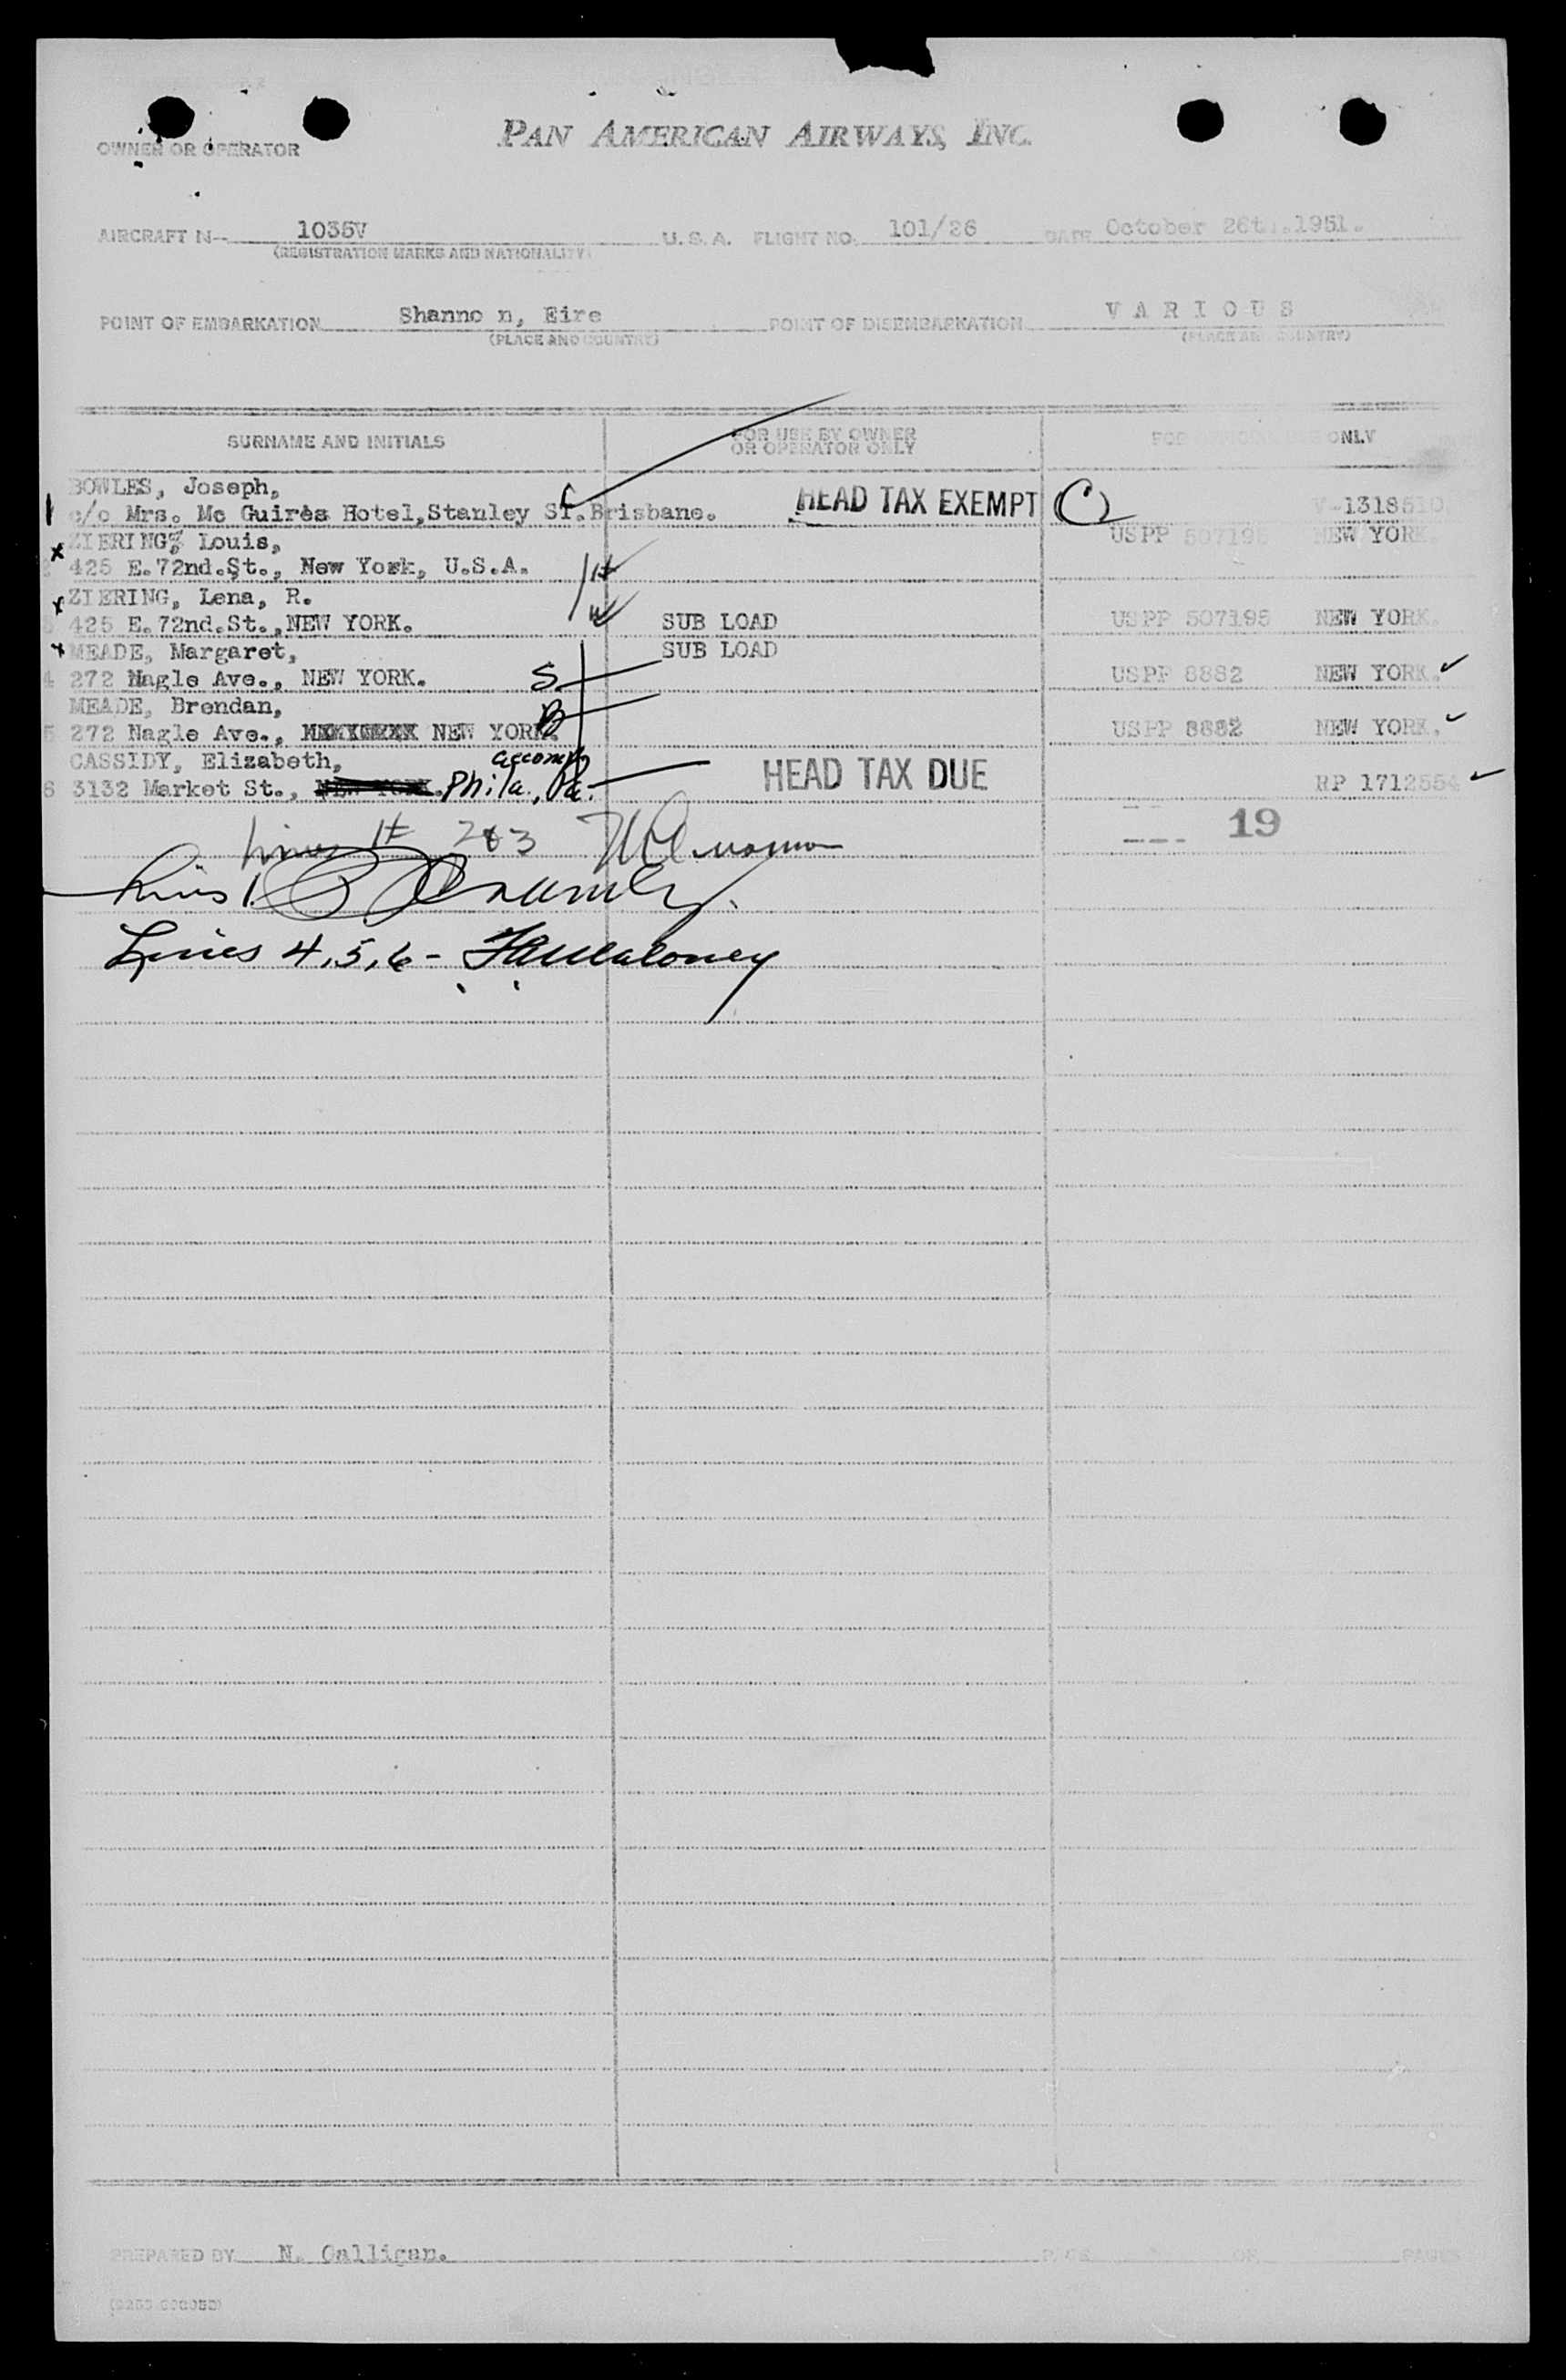 PAN AMERICAN AIRWAYS, INC.
OWNER OR OPERATOR
AIRCRAFT N- 1035V U.S.A. FLIGHT NO. 101/26 DATE October 26t .1951.
(REGISTRATION MARKS AND NATIONALITY)
POINT OF EMBARKATION Shanno n, Eire POINT OF DISEMBARKATION V A R I O U S
(PLACE AND COUNTRY) (PLACE AND COUNTRY)
SURNAME AND INITIALS FOR USE BY OWNER OR OPERATOR ONLY FOR ONLY
BOWLES, Joseph,
1 c/o Mrs. Mc Guires Hotel,Stanley St.Brisbane. HEAD TAX EXEMPT (C) V-1318510
ZIERING, Louis, USPP 507195 NEW YORK.
x 2 425 E.72nd.St., New York, U.S.A. H
x ZIERING, Lena, R.
3 425 E.72nd.St.,NEW YORK. W SUB LOAD USPP 507195 NEW YORK.
x MEADE, Margaret, SUB LOAD
4 272 Nagle Ave., NEW YORK. S USPP 8882 NEW YORK.
MEADE, Brendan,
5 272 Nagle Ave., NEW YORK. B USPP 8882 NEW YORK.
CASSIDY, Elizabeth, accomp
6 3132 Market St., NEW YORK. Phila., Pa. HEAD TAX DUE RP 1712554
19
Lines 2&3
Line 1.
Lines 4,5,6 - Maloney
PREPARED BY N. Galligan. PAGE OF PAGES